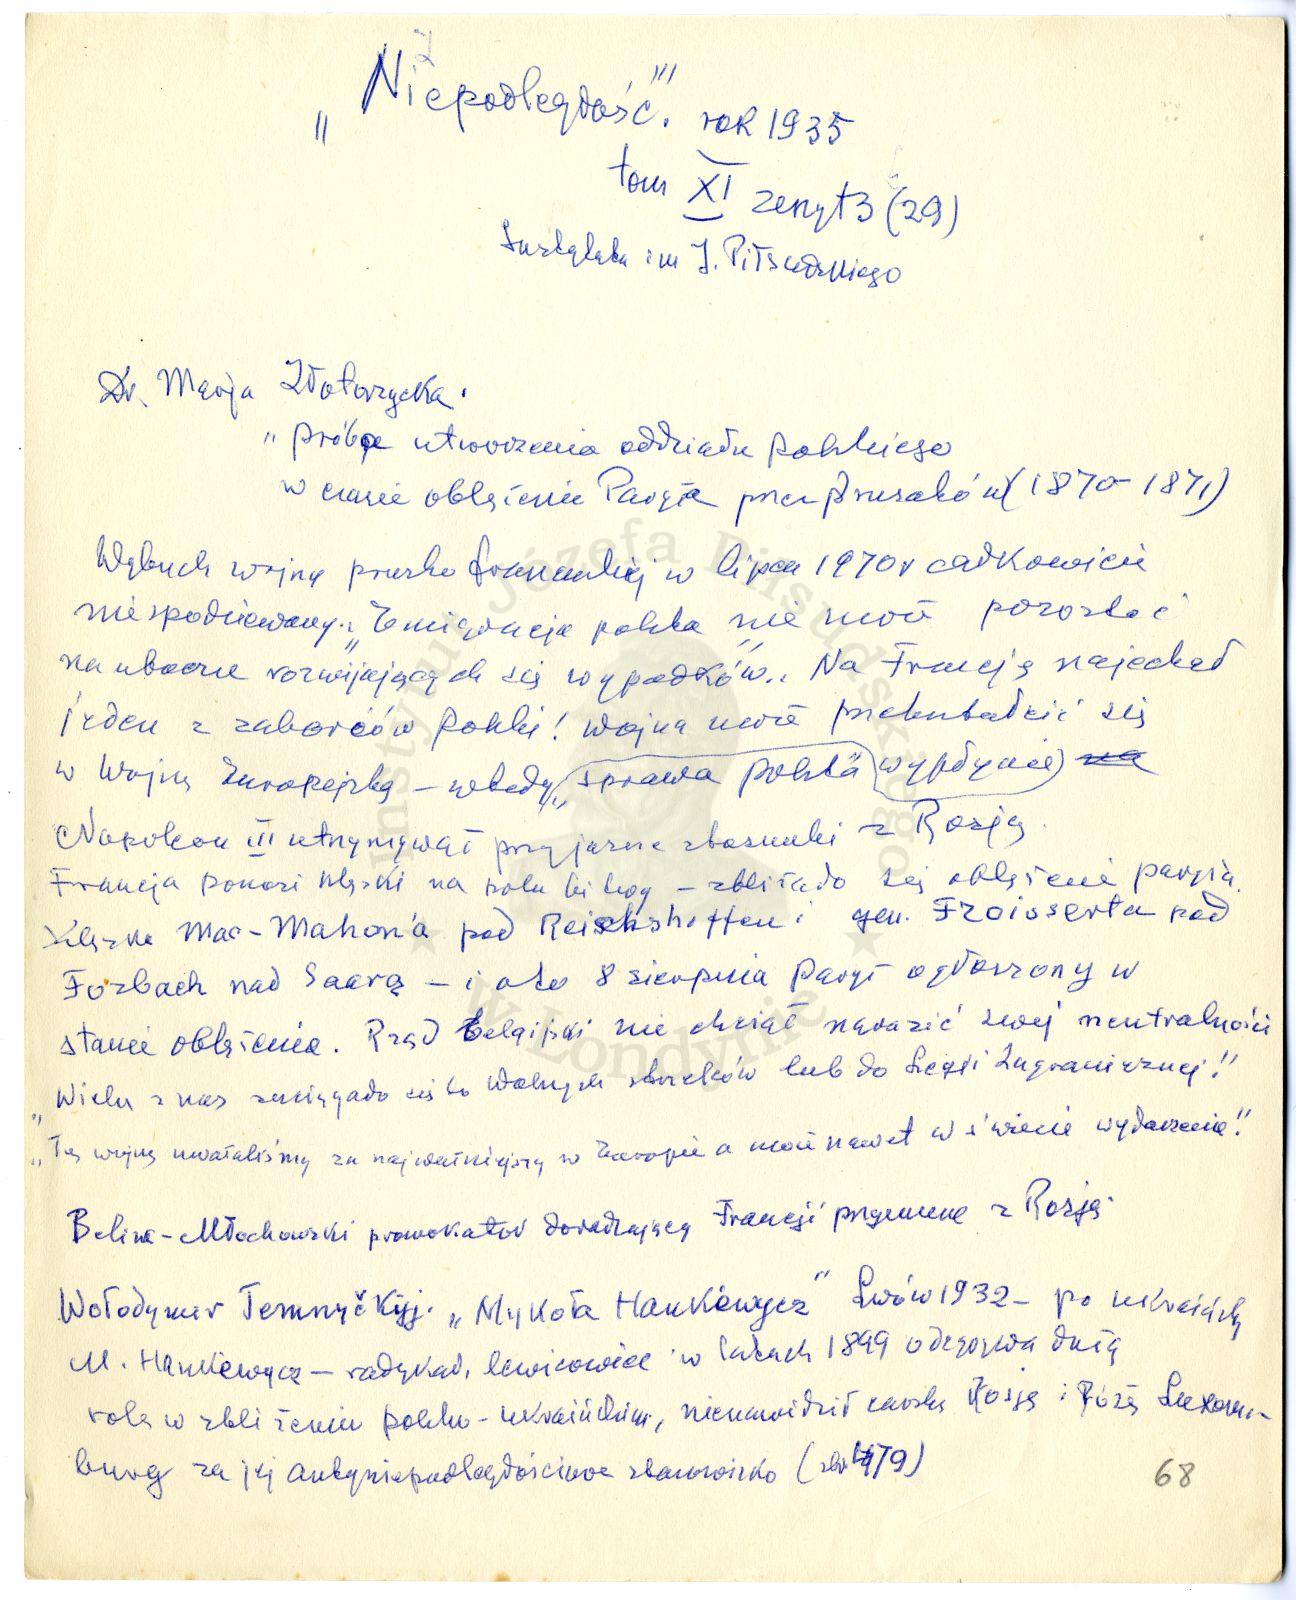 „Niepodległość". rok 1935
tom XI zeszyt 3 (29)
Instytutu im J. Piłsudskiego
Dr. Marja Złotorzycka.
"próba utworzenia oddziału polskiego
w czasie oblężenia Paryża przez Prusaków (1870-1871)
Wybuch wojny prusko francuskiej w lipcu 1970r całkowicie
niespodziewany. „Emigracja polska nie może pozostać
na uboczu rozwijających się wypadków". Na Francję najechał
jeden z zaborców Polski! wojna może przekształcić się
w Wojnę Europejską – wtedy „sprawa polska wypłynie) na
Napoleon III utrzymywał przyjazne stosunki z Rosją.
Francja ponosi klęski na polu bitwy – zbliżało się oblężenie paryża.
Klęska Mac-Mahon'a pod Reichshoffen i gen. Froisserta pod
Forbach nad Saarą – i oto 8 sierpnia Paryż ogłoszony w
stanie oblężenia. Rząd belgijski nie chciał narazić swej neutralności
„Wielu z nas zaciągało się do Wolnych strzelców lub do Legji Zagranicznej!"
„Tę wojnę uważaliśmy za najważniejszą w Europie a może nawet w świecie wydarzenie!"
Belina-Młochowski prowokator doradzający Francji przymierze z Rosją.
Wołodymer Temnyćkyj. „Mykoła Hankewycz" Lwów 1932 – po ukraińsku
M. Hankewycz – radykał, lewicowiec w latach 1899 odegrywa dużą
rolę w zbliżeniu polsko-ukraińskim, nienawidził carską Rosję i Różę Luxem-
burg za jej antyniepodległościowe stanowisko (str 479)
68
Instytut Józefa Piłsudskiego
w Londynie